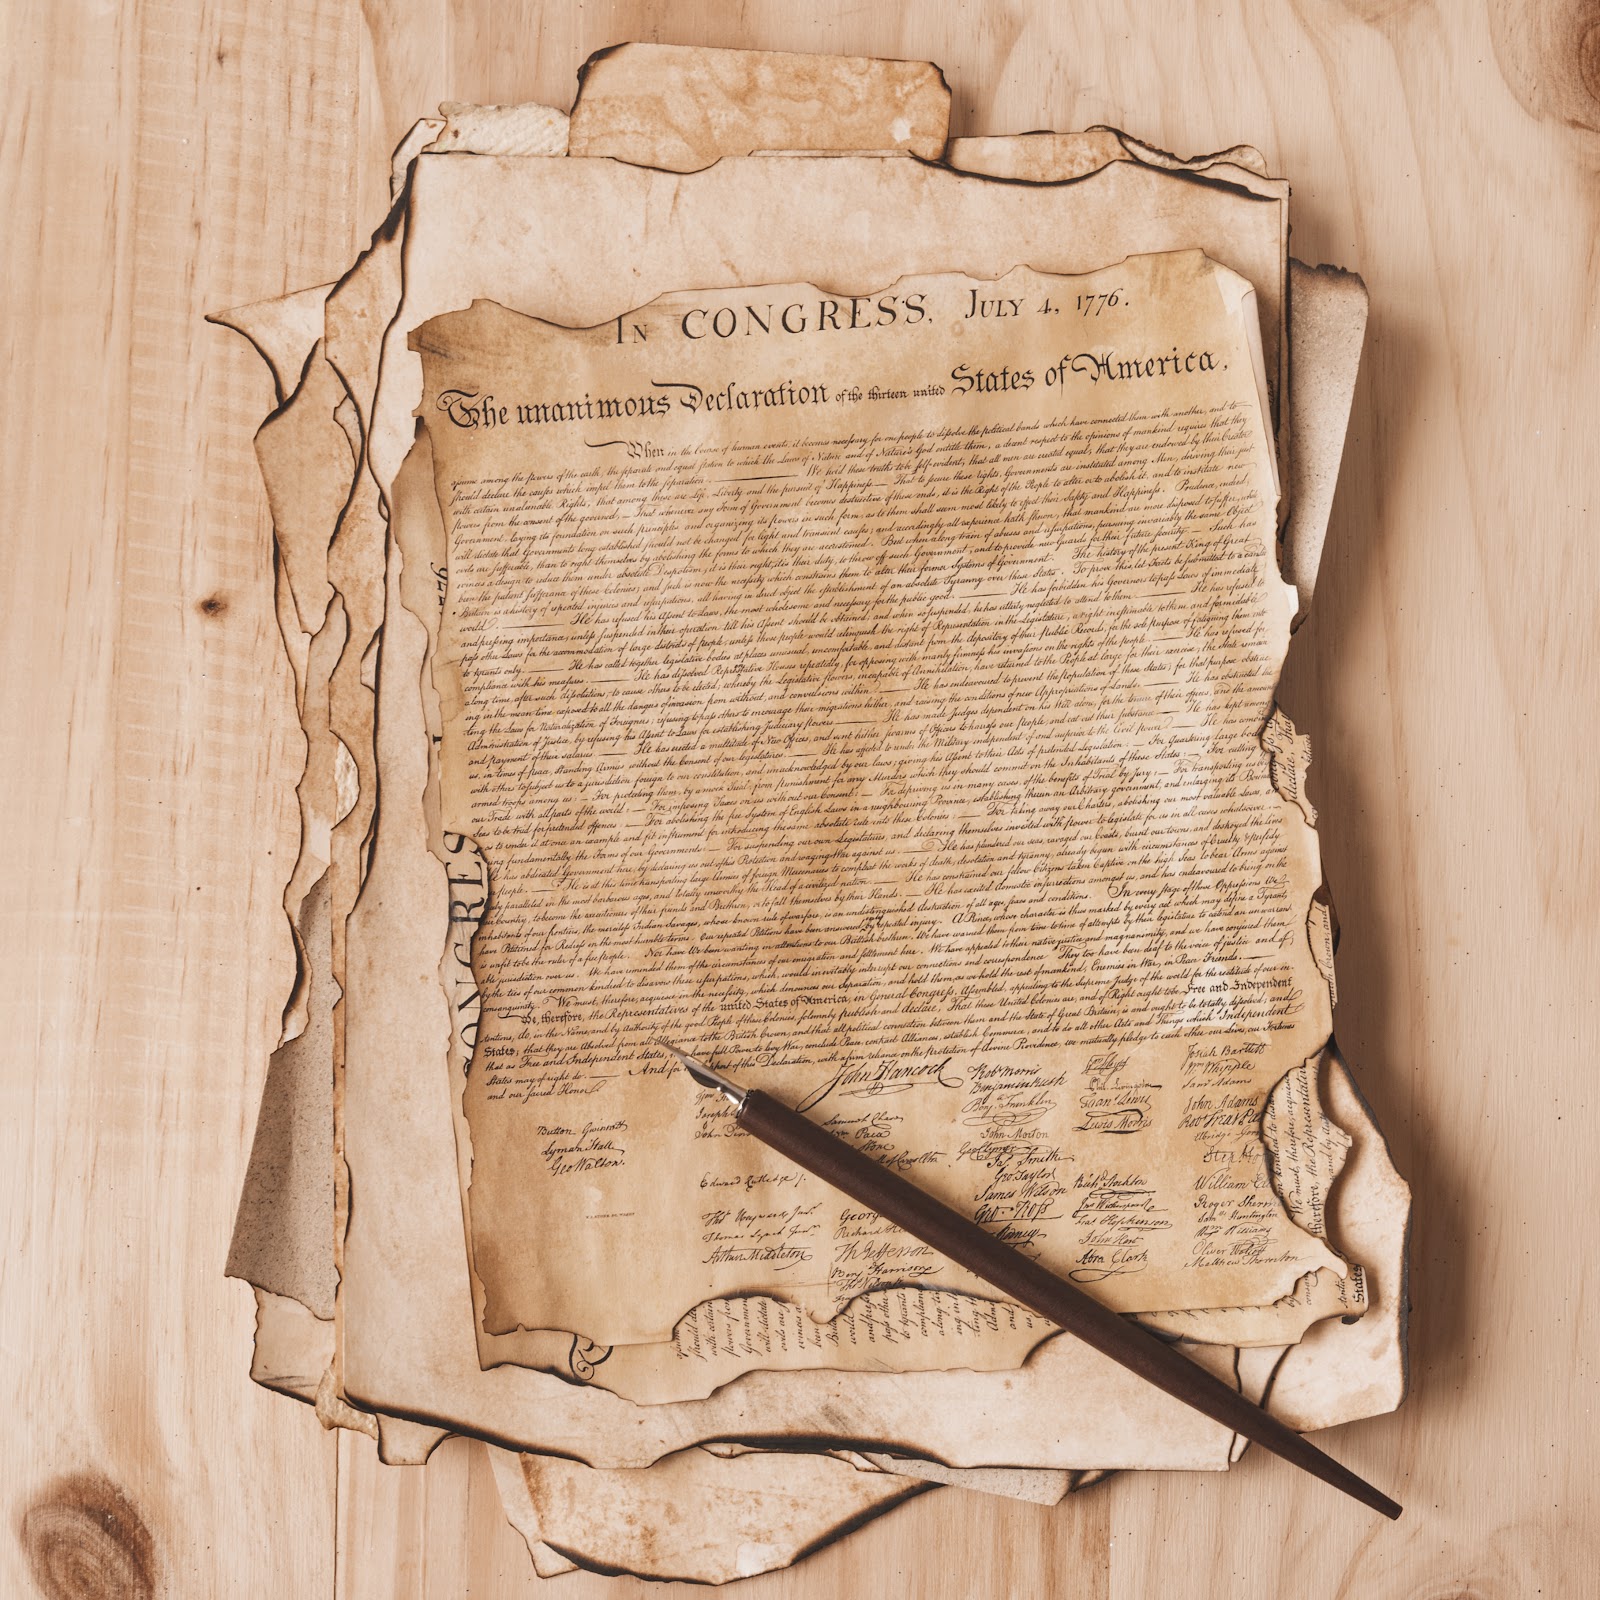 In CONGRESS, July 4, 1776.
The unanimous Declaration of the thirteen united States of America,
When in the Course of human events, it becomes necessary for one people to dissolve the political bands which have connected them with another, and to
assume among the powers of the earth, the separate and equal station to which the Laws of Nature and of Nature's God entitle them, a decent respect to the opinions of mankind requires that they
should declare the causes which impel them to the separation. We hold these truths to be self-evident, that all men are created equal, that they are endowed by their Creator
with certain unalienable Rights, that among these are Life, Liberty and the pursuit of Happiness.— That to secure these rights, Governments are instituted among Men, deriving their just
powers from the consent of the governed,— That whenever any Form of Government becomes destructive of these ends, it is the Right of the People to alter or to abolish it, and to institute new
Government, laying its foundation on such principles and organizing its powers in such form, as to them shall seem most likely to effect their Safety and Happiness. Prudence, indeed,
will dictate that Governments long established should not be changed for light and transient causes; and accordingly all experience hath shewn, that mankind are more disposed to suffer, while
evils are sufferable, than to right themselves by abolishing the forms to which they are accustomed. But when a long train of abuses and usurpations, pursuing invariably the same Object
evinces a design to reduce them under absolute Despotism, it is their right, it is their duty, to throw off such Government, and to provide new Guards for their future security.— Such has
been the patient sufferance of these Colonies; and such is now the necessity which constrains them to alter their former Systems of Government. The history of the present King of Great
Britain is a history of repeated injuries and usurpations, all having in direct object the establishment of an absolute Tyranny over these States. To prove this, let Facts be submitted to a candid
world. He has refused his Assent to Laws, the most wholesome and necessary for the public good. He has forbidden his Governors to pass Laws of immediate
and pressing importance, unless suspended in their operation till his Assent should be obtained; and when so suspended, he has utterly neglected to attend to them. He has refused to
pass other Laws for the accommodation of large districts of people, unless those people would relinquish the right of Representation in the Legislature, a right inestimable to them and formidable
to tyrants only. He has called together legislative bodies at places unusual, uncomfortable, and distant from the depository of their Public Records, for the sole purpose of fatiguing them into
compliance with his measures. He has dissolved Representative Houses repeatedly, for opposing with manly firmness his invasions on the rights of the people. He has refused for
along time, after such dissolutions, to cause others to be elected; whereby the Legislative powers, incapable of Annihilation, have returned to the People at large for their exercise; the State remain
ing in the mean time exposed to all the dangers of invasion from without, and convulsions within. He has endeavoured to prevent the population of these States; for that purpose obstruc
ting the Laws for Naturalization of Foreigners; refusing to pass others to encourage their migrations hither, and raising the conditions of new Appropriations of Lands. He has obstructed the
Administration of Justice, by refusing his Assent to Laws for establishing Judiciary powers. He has made Judges dependent on his Will alone, for the tenure of their offices, and the amount
and payment of their salaries. He has erected a multitude of New Offices, and sent hither swarms of Officers to harrass our people, and eat out their substance. He has kept among
us, in times of peace, Standing Armies without the Consent of our legislatures. He has affected to render the Military independent of and superior to the Civil power. He has
with others to subject us to a jurisdiction foreign to our constitution, and unacknowledged by our laws; giving his Assent to their Acts of pretended Legislation: For Quartering large
armed troops among us: For protecting them, by a mock Trial, from punishment for any Murders which they should commit on the Inhabitants of these States: For cutting
our Trade with all parts of the world: For imposing Taxes on us without our Consent: For depriving us in many cases, of the benefits of Trial by Jury: For transporting us
Seas to be tried for pretended offences For abolishing the free System of English Laws in a neighbouring Province, establishing therein an Arbitrary government, and enlarging its
as to render it at once an example and fit instrument for introducing the same absolute rule into these Colonies: For taking away our Charters, abolishing our most valuable Laws, and
fundamentally the Forms of our Governments: For suspending our own Legislatures, and declaring themselves invested with power to legislate for us in all cases whatsoever.
has abdicated Government here, by declaring us out of his Protection and waging War against us. He has plundered our seas, ravaged our Coasts, burnt our towns, and destroyed the lives
people. He is at this time transporting large Armies of foreign Mercenaries to compleat the works of death, desolation and tyranny, already begun with circumstances of Cruelty & perfidy
paralleled in the most barbarous ages, and totally unworthy the Head of a civilized nation. He has constrained our fellow Citizens taken Captive on the high Seas to bear Arms against
Country, to become the executioners of their friends and Brethren, or to fall themselves by their Hands. He has excited domestic insurrections amongst us, and has endeavoured to bring on the
inhabitants of our frontiers, the merciless Indian Savages, whose known rule of warfare, is an undistinguished destruction of all ages, sexes and conditions. In every stage of these Oppressions We
have Petitioned for Redress in the most humble terms: Our repeated Petitions have been answered only by repeated injury. A Prince, whose character is thus marked by every act which may define a Tyrant,
is unfit to be the ruler of a free people. Nor have We been wanting in attentions to our Brittish brethren. We have warned them from time to time of attempts by their legislature to extend an unwarrant
able jurisdiction over us. We have reminded them of the circumstances of our emigration and settlement here. We have appealed to their native justice and magnanimity, and we have conjured them
by the ties of our common kindred to disavow these usurpations, which, would inevitably interrupt our connections and correspondence. They too have been deaf to the voice of justice and of
consanguinity. We must, therefore, acquiesce in the necessity, which denounces our Separation, and hold them, as we hold the rest of mankind, Enemies in War, in Peace Friends.
We, therefore, the Representatives of the united States of America, in General Congress, Assembled, appealing to the Supreme Judge of the world for the rectitude of our in-
tentions, do, in the Name, and by Authority of the good People of these Colonies, solemnly publish and declare, That these United Colonies are, and of Right ought to be Free and Independent
States; that they are Absolved from all Allegiance to the British Crown, and that all political connection between them and the State of Great Britain, is and ought to be totally dissolved; and
that as Free and Independent States, have full Power to levy War, conclude Peace, contract Alliances, establish Commerce, and to do all other Acts and Things which Independent
States may of right do. And for support of this Declaration, with a firm reliance on the protection of divine Providence, we mutually pledge to each other our Lives, our Fortunes
and our sacred Honor.
Button Gwinnett
Lyman Hall
Geo Walton.
Joseph
John
Edward Rutledge /.
Thos Heyward Junr.
Thomas Lynch Junr.
Arthur Middleton
John Hancock
Samuel Chase
Paca
of Carrollton
George
Richard
Th Jefferson
Benj Harrison
Robt Morris
Benjamin Rush
Benj. Franklin
John Morton
Geo Clymer
Jas. Smith.
Geo. Taylor
James Wilson
Geo. Ross
Wm Floyd
Phil. Livingston
Frans. Lewis
Lewis Morris
Richd. Stockton
Jno Witherspoon
Fras. Hopkinson
John Hart
Abra Clark
Josiah Bartlett
Wm. Whipple
Saml Adams
John Adams
Robt Treat
Elbridge
Step
William
Roger
Saml Huntington
Wm. Williams
Oliver Wolcott
Matthew Thornton
CONGRES
We must, therefore,
therefore, the Representatives
States